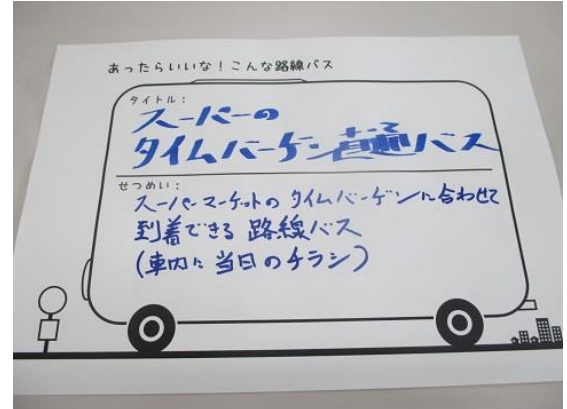 あったらいいな！こんな路線バス
タイトル：
スーパーの
タイムバーゲン直通バス
せつめい：
スーパーマーケットの タイムバーゲンに合わせて
到着できる 路線バス
(車内に 当日のチラシ)